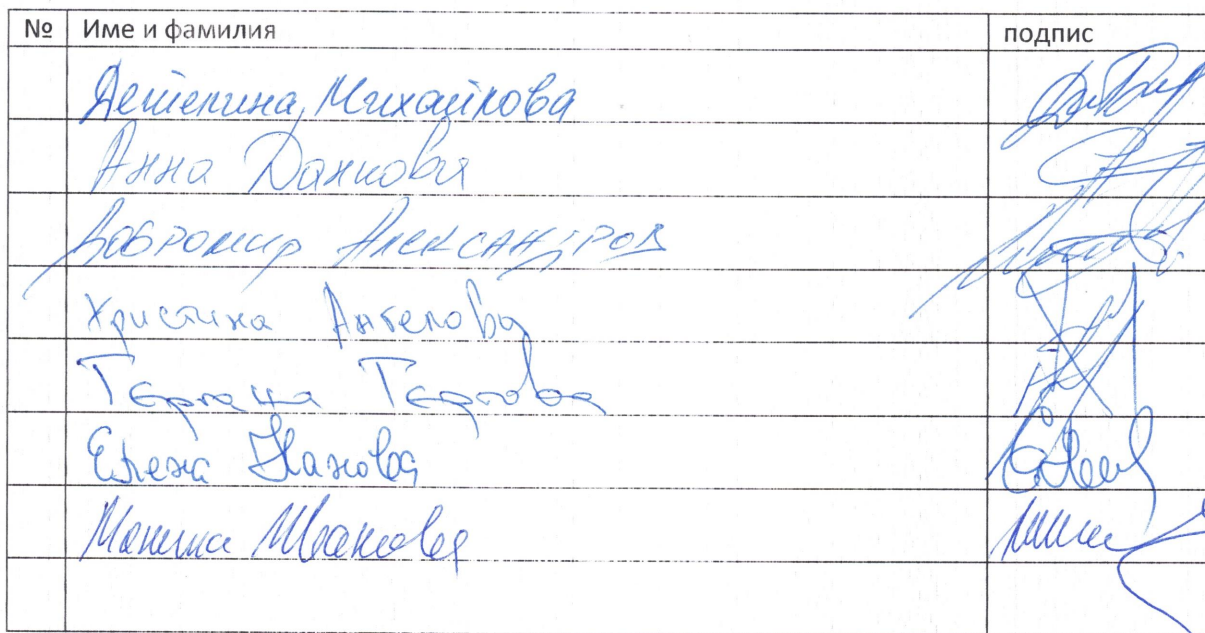 № Име и фамилия подпис
Михайлова
Анна Данкова
Добромир Александров
Христина Ангелова
Гергана Гергова
Елена Нанова